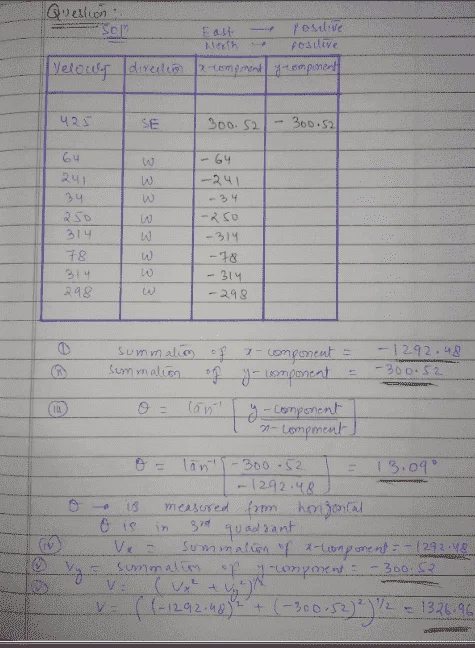 Question :
Solⁿ East → Positive
North → Positive
Velocity direction x-component y-component
425 SE 300.52 - 300.52
64 W - 64
241 W - 241
34 W - 34
250 W - 250
314 W - 314
78 W - 78
314 W - 314
298 W - 298
(i) Summation of x-component = - 1292.48
(ii) Summation of y-component = - 300.52
(iii) θ = tan⁻¹ [ y-component / x-component ]
θ = tan⁻¹ [ - 300.52 / - 1292.48 ] = 13.09°
θ → is measured from horizontal
θ is in 3rd quadrant
(iv) Vx = Summation of x-component = - 1292.48
(v) Vy = Summation of y-component = - 300.52
V = ( Vx² + Vy² )^1/2
V = ( (-1292.48)² + (-300.52)² )^1/2 = 1326.96